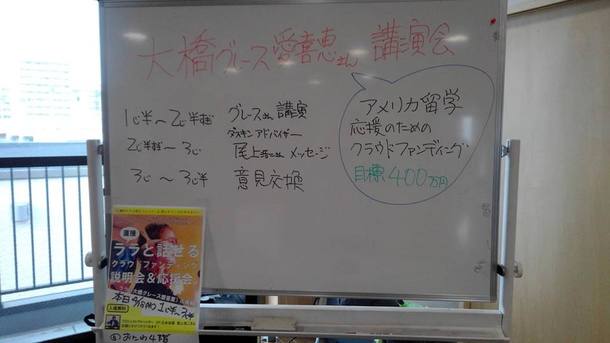 大橋グレース愛喜恵さん 講演会
1じ半〜2じ半 グレースさん 講演
ダスキンアドバイザー
2じ半〜3じ 尾上 メッセージ
3じ〜3じ半 意見交換
アメリカ留学
応援のための
クラウドファンディング
目標400万円
直接
ララと話せる
クラウドファンディング
説明会&応援会
大橋グレース愛喜恵
本日